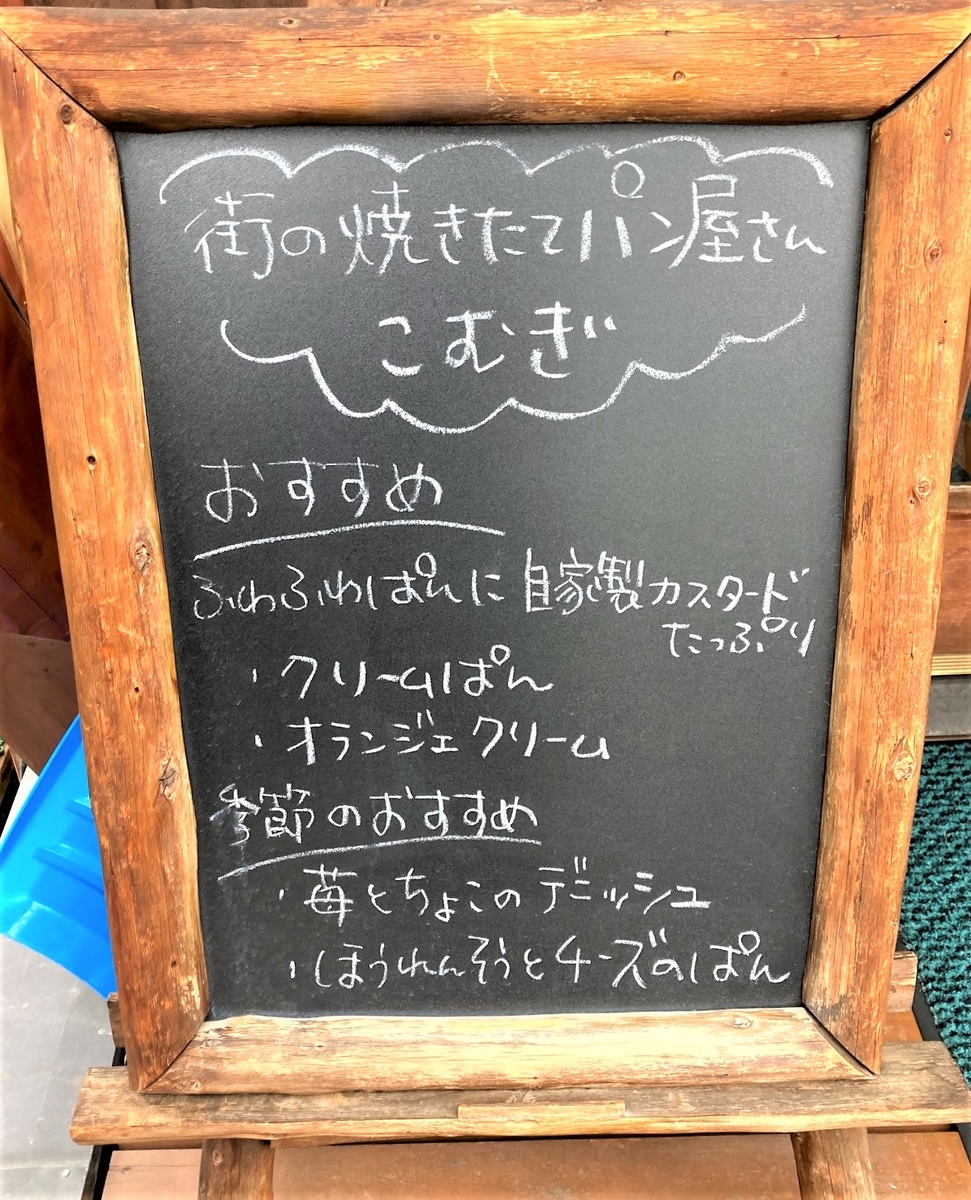 街の焼きたてパン屋さん
こむぎ
おすすめ
ふわふわぱんに自家製カスタード
たっぷり
・クリームぱん
・オランジェクリーム
季節のおすすめ
・苺とちょこのデニッシュ
・ほうれんそうとチーズのぱん